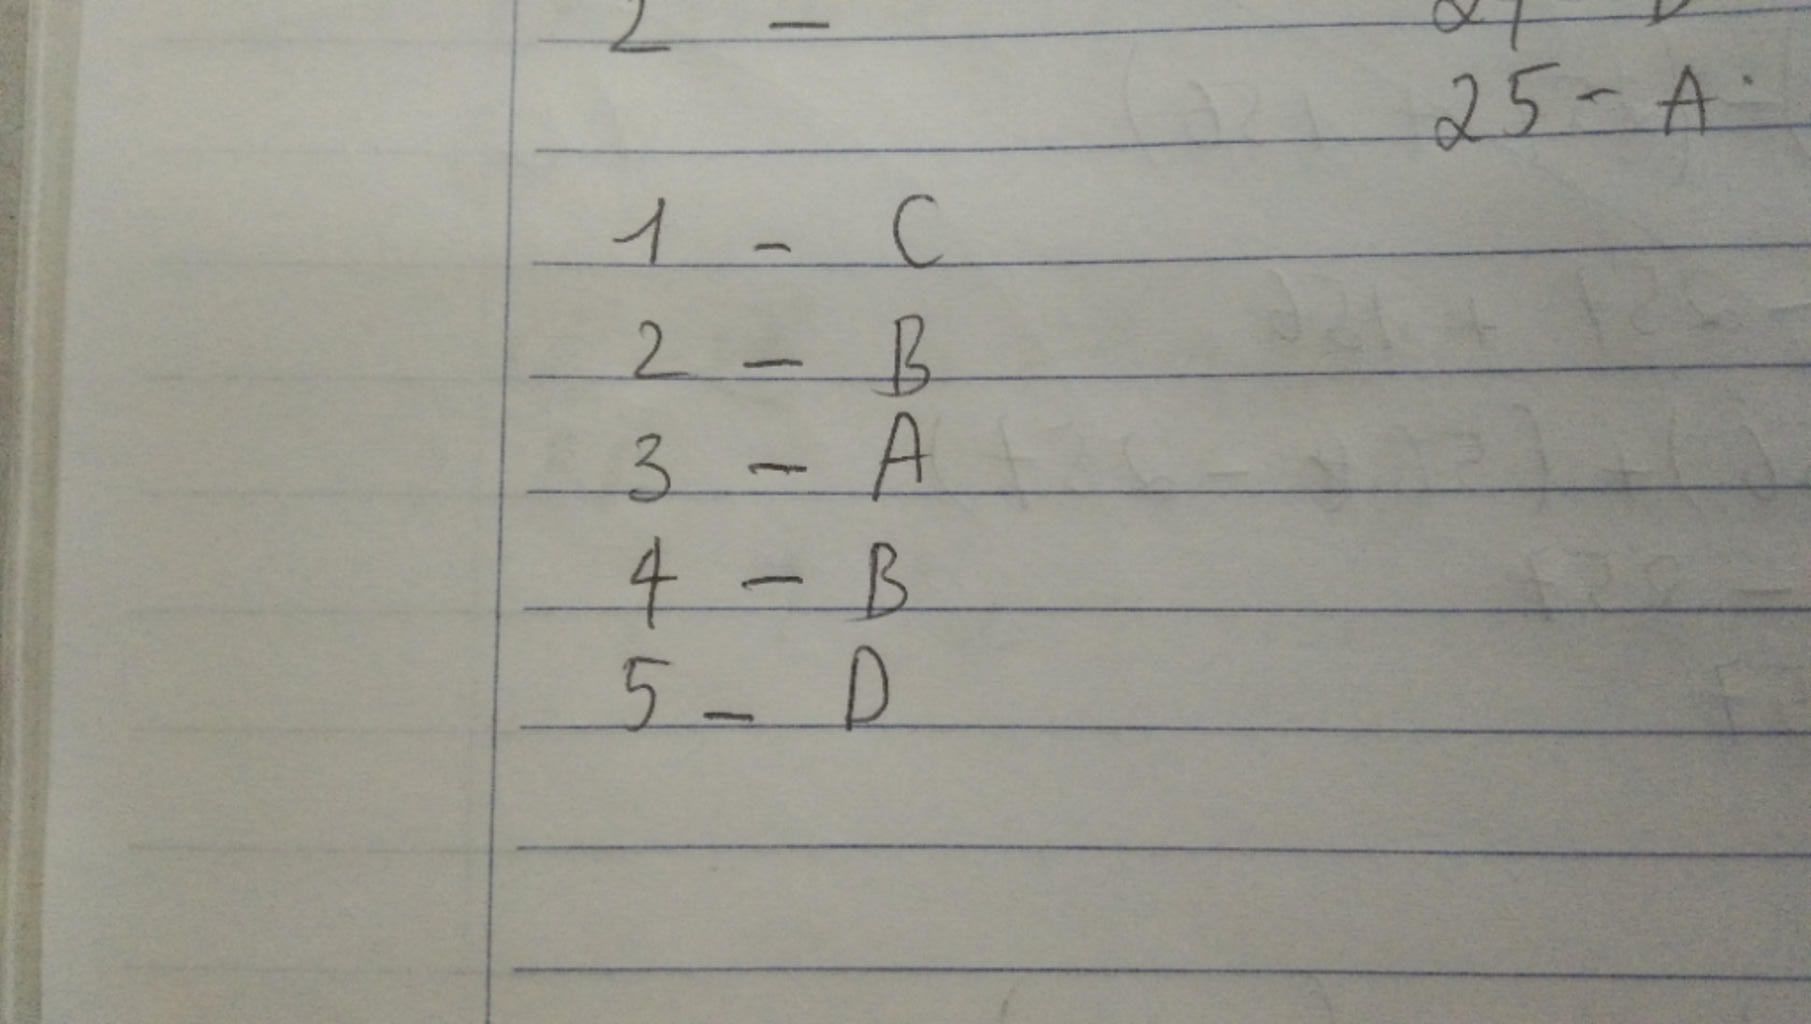 2 -
25 - A.
1 - C
2 - B
3 - A
4 - B
5 - D